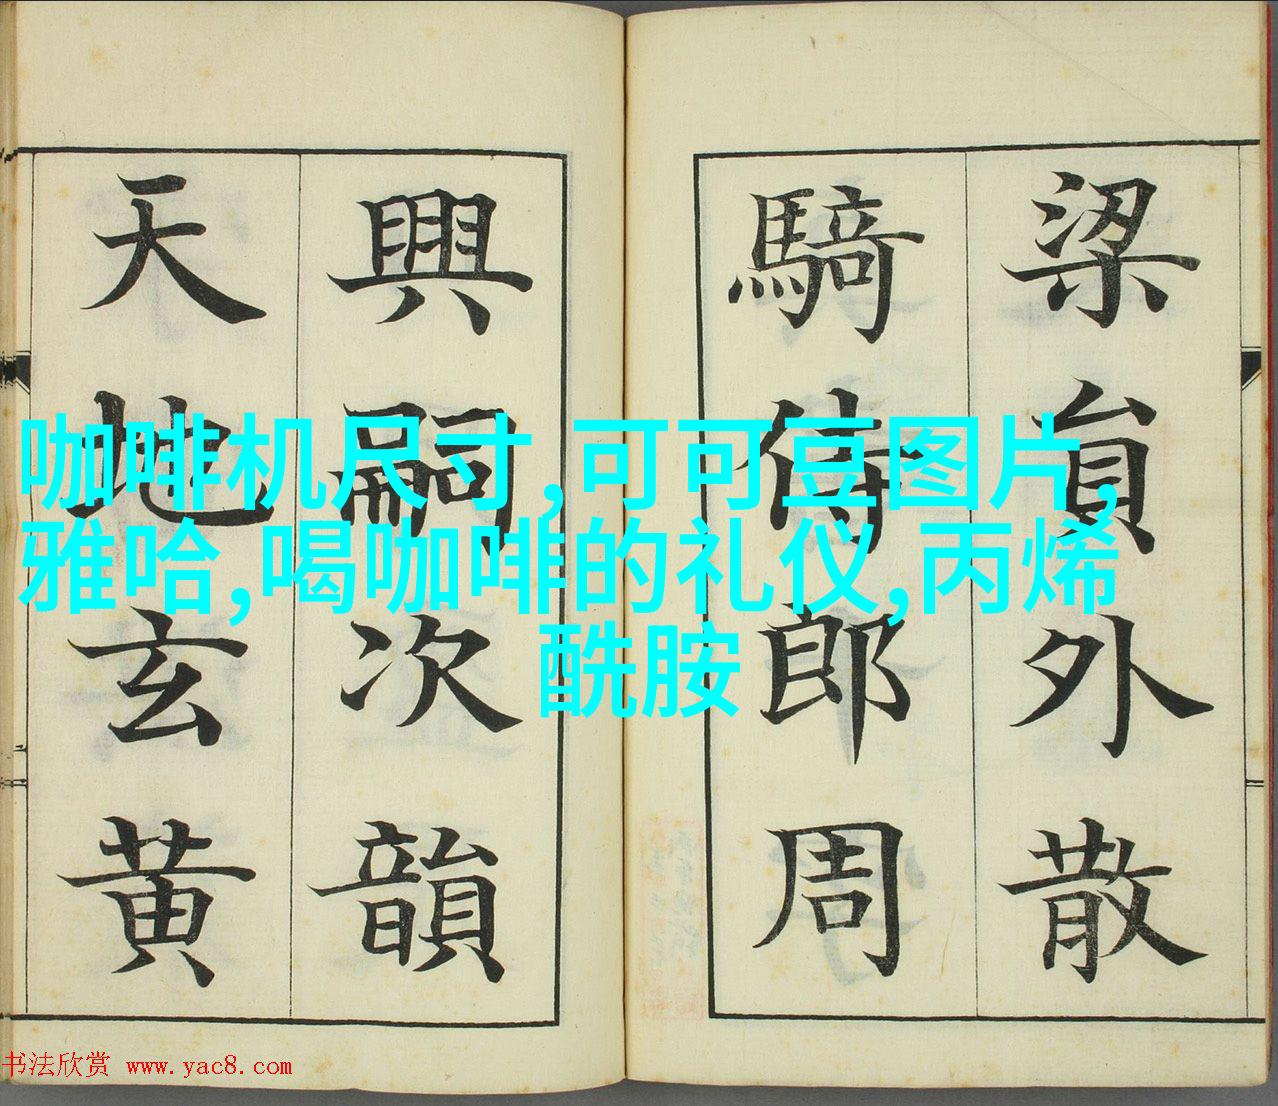 梁員外散
騎侍郎周
興嗣次韻
天地玄黄
咖啡机尺寸,可可豆图片,
雅哈,喝咖啡的礼仪,丙烯
酰胺
书法欣赏 www.yac8.com